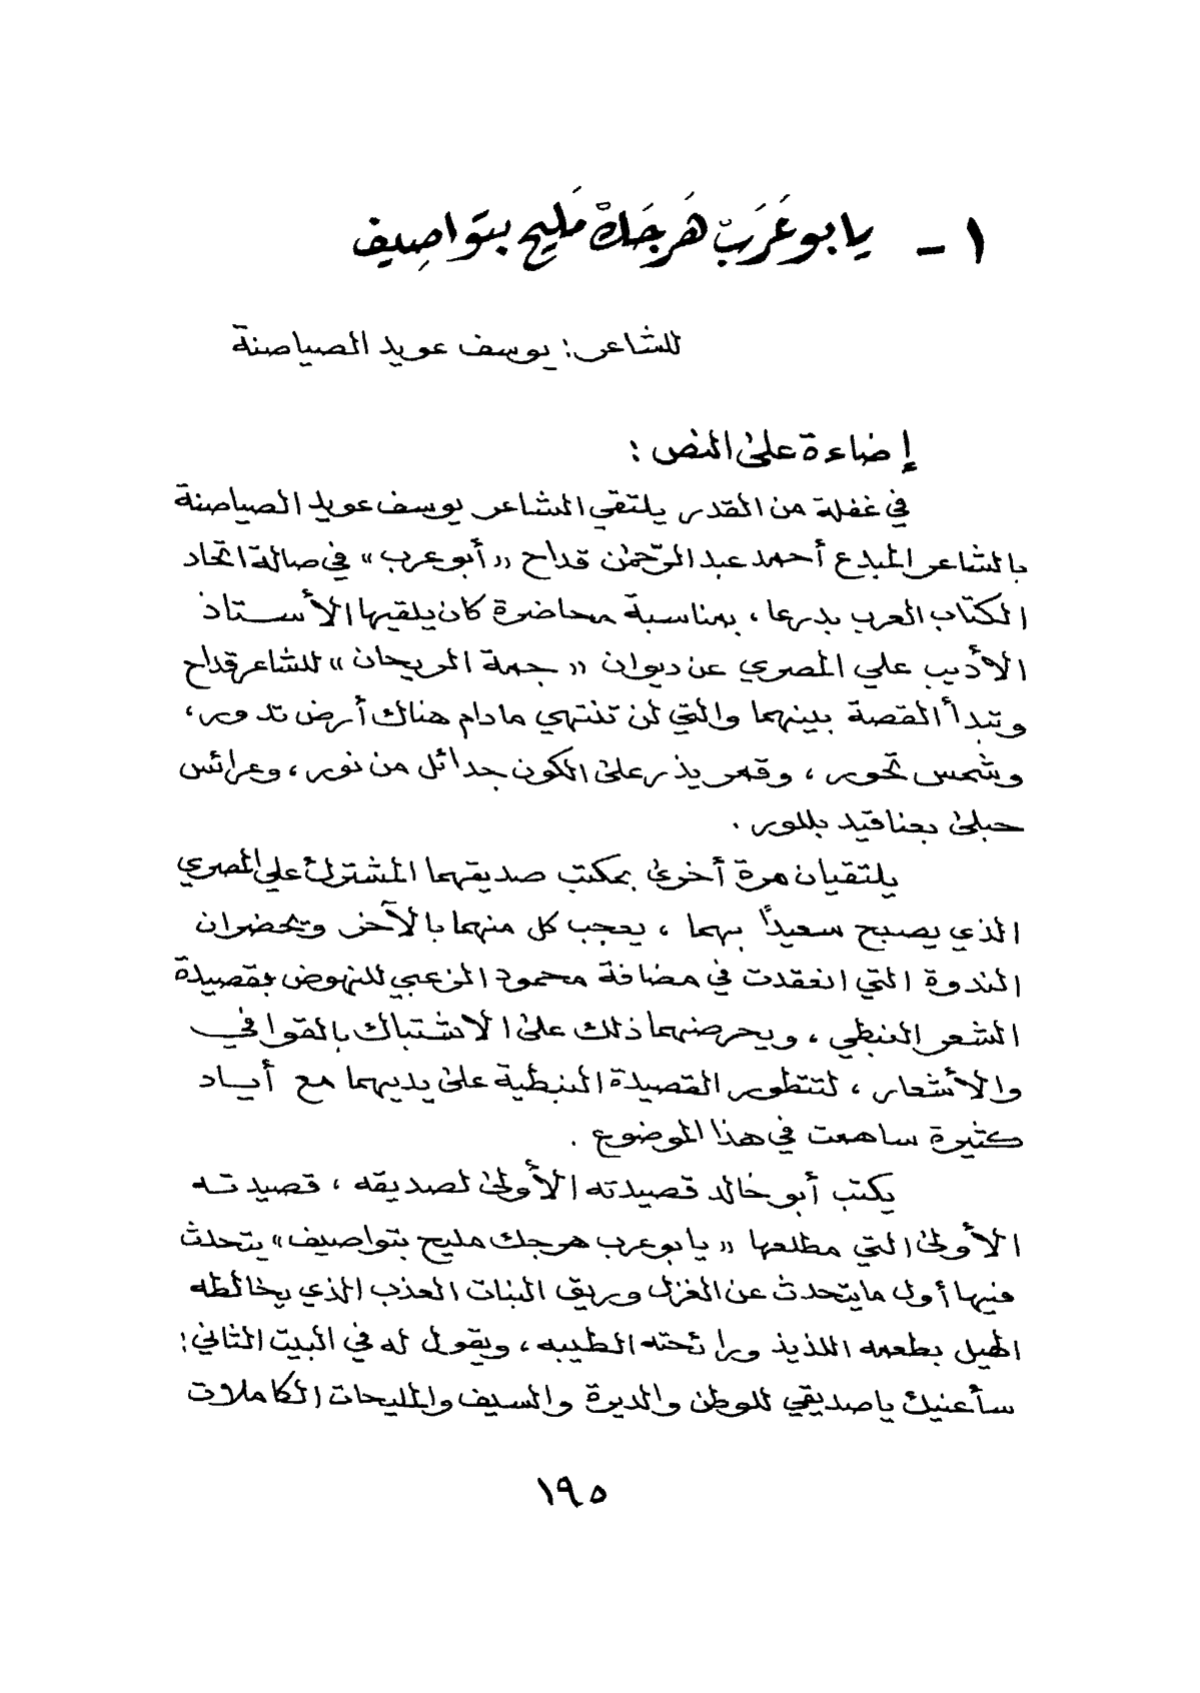 ١ - يا بو عَرَبْ هَرجَكْ مَليح بتواصِيف
للشاعر: يوسف عويد الصياصنة
إضاءة على النص :
في غفلة من القدر يلتقي الشاعر يوسف عويد الصياصنة
بالشاعر المبدع أحمد عبد الرّحمٰن قداح «أبو عرب» في صالة اتحاد
الكتاب العرب بدرعا ، بمناسبة محاضرة كان يلقيها الأستاذ
الأديب علي المصري عن ديوان « جمة الريحان » للشاعر قداح
وتبدأ القصة بينهما والتي لن تنتهي مادام هناك أرض تدور ،
وشمس تحور ، وقمر يذر على الكون جدائل من نور ، وعرائس
حبلى بعناقيد بللور .
يلتقيان مرة أخرى بمكتب صديقهما المشترك علي المصري
الذي يصبح سعيداً بهما ، يعجب كل منهما بالآخر ويحضران
الندوة التي انعقدت في مضافة محمود الزعبي للنهوض بقصيدة
الشعر النبطي ، ويحرضهما ذلك على الاشتباك بالقوافي
والأشعار ، لتتطور القصيدة النبطية على يديهما مع أياد
كثيرة ساهمت في هذا الموضوع .
يكتب أبو خالد قصيدته الأولى لصديقه ، قصيدته
الأولى التي مطلعها « يا بو عرب هرجك مليح بتواصيف » يتحدث
فيها أول ما يتحدث عن الغزل وريق البنات العذب الذي يخالطه
الهيل بطعمه اللذيذ ورائحته الطيبه ، ويقول له في البيت الثاني :
سأعنيك يا صديقي للوطن والديرة والسيف والمليحات الكاملات
١٩٥